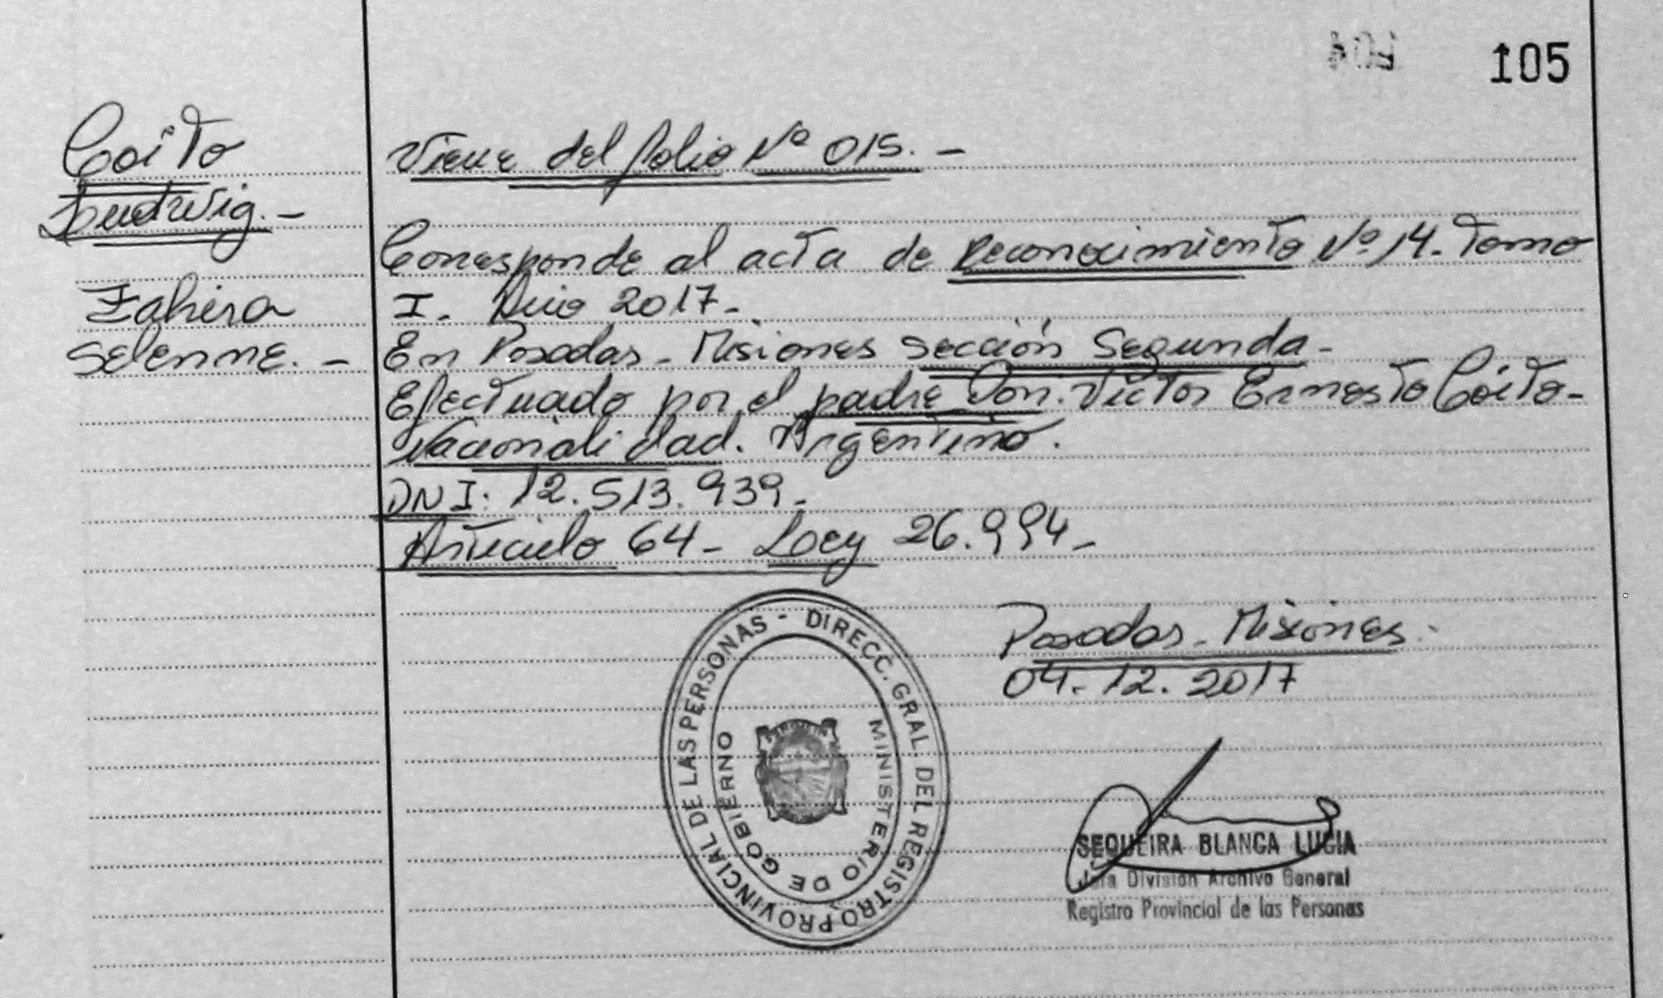 105
Coito
Ludwig.-
Zahira
Selenne.-
Viene del folio Nº 015.-
Corresponde al acta de Reconocimiento Nº 14. Tomo
I. Año 2017.-
En Posadas - Misiones Sección Segunda-
Efectuado por el padre Don. Victor Ernesto Coito-
Nacionalidad. Argentino.
DNI: 12.513.939-
Articulo 64- Ley 26.994-
Posadas - Misiones.
04.12.2017
DIRECC. GRAL DEL REGISTRO PROVINCIAL DE LAS PERSONAS -
MINISTERIO DE GOBIERNO
SEQUEIRA BLANCA LUCIA
Jefa División Archivo General
Registro Provincial de las Personas